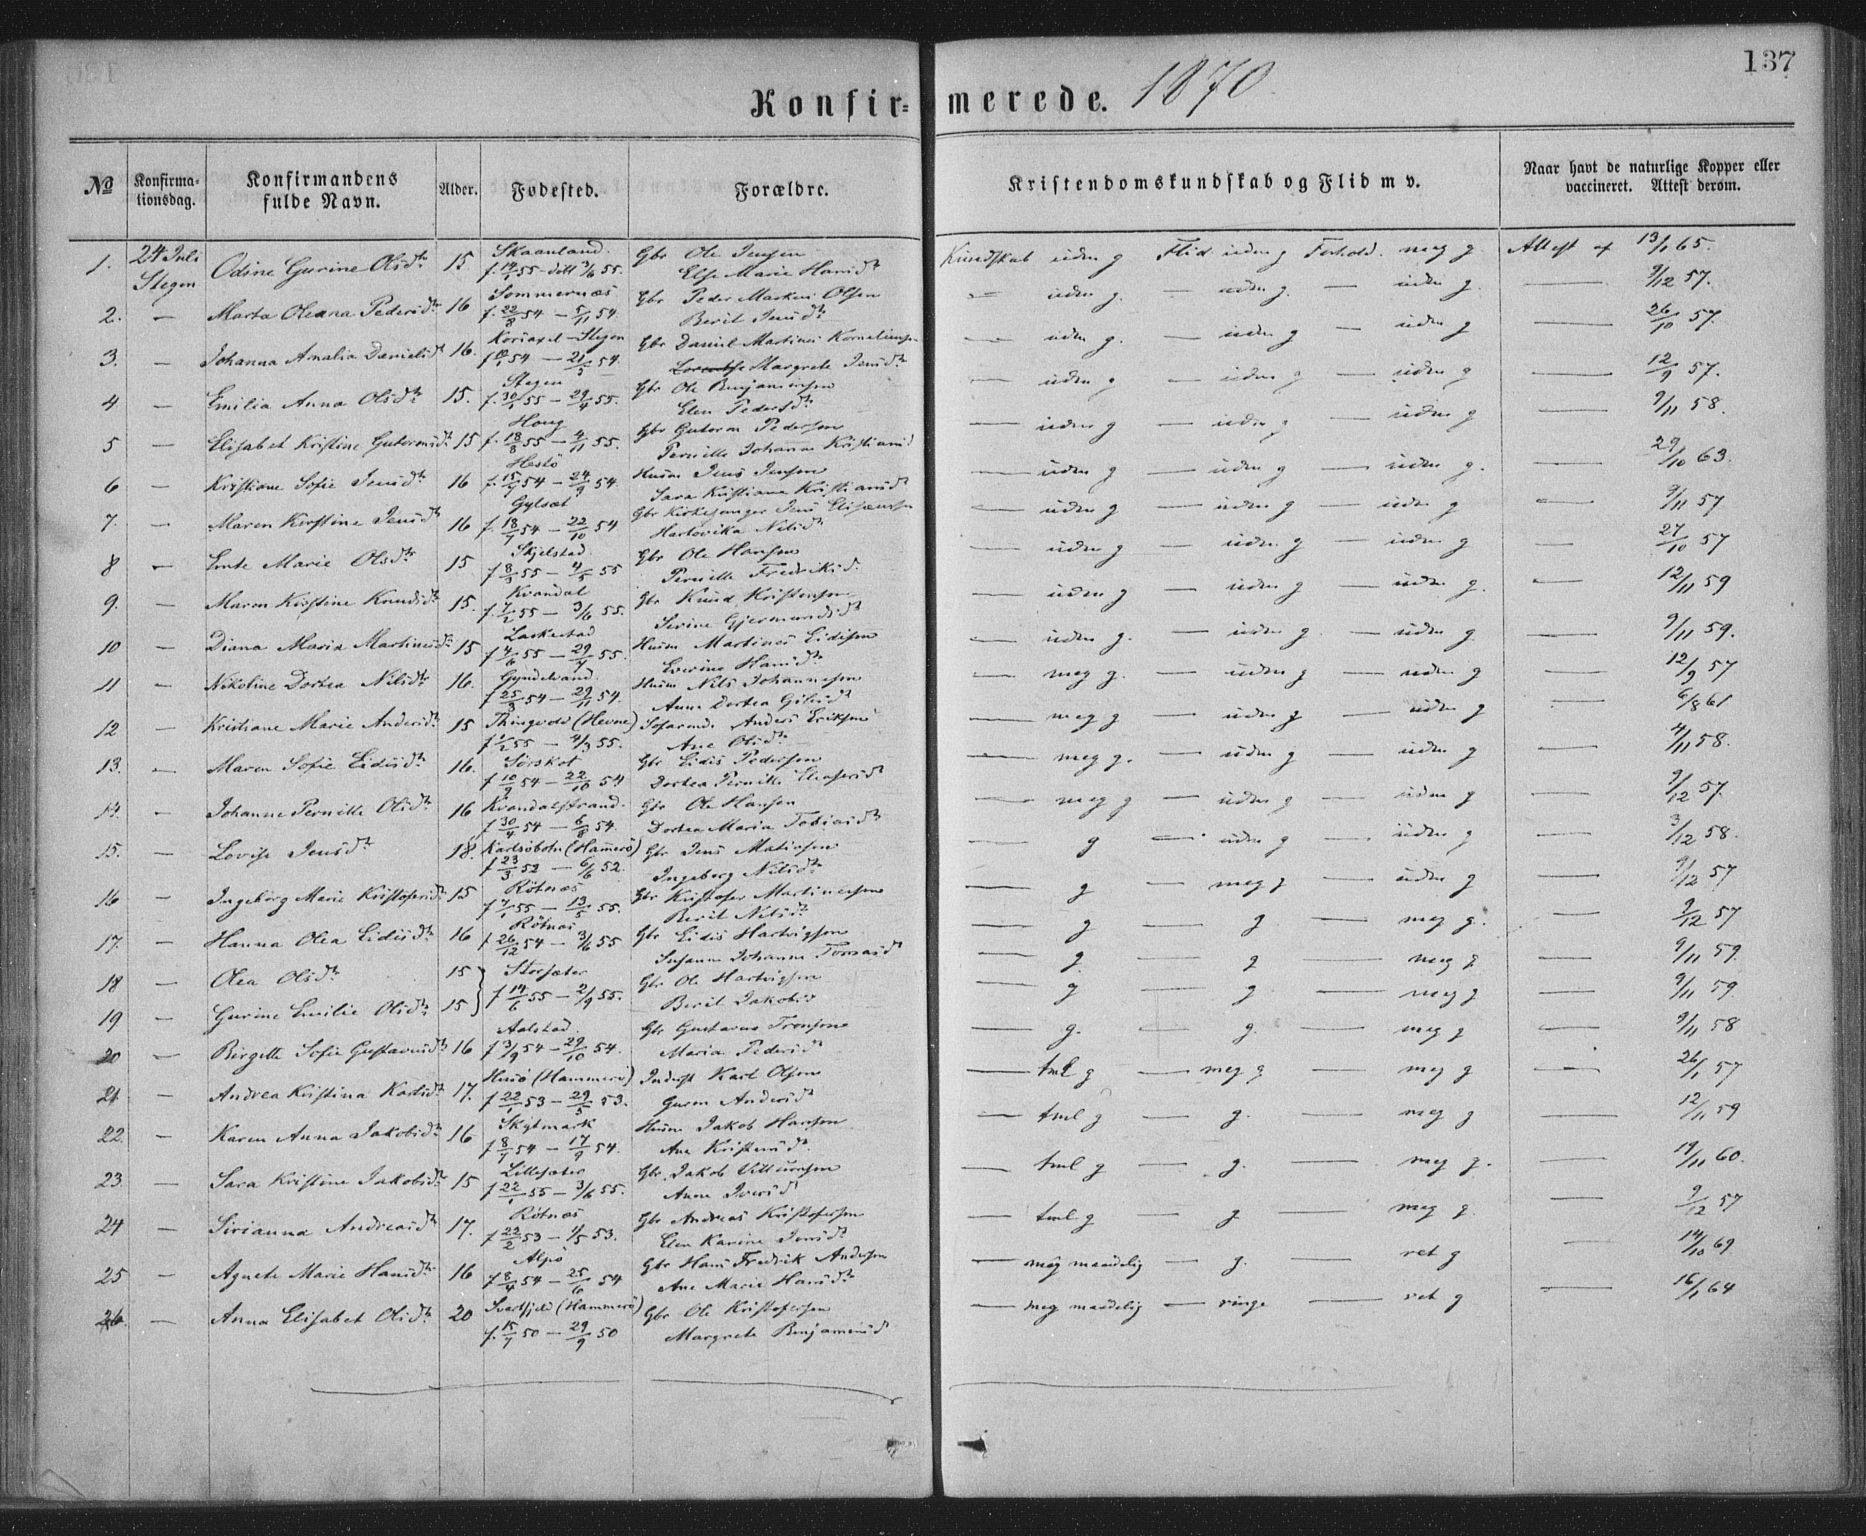 137
Konfirmerede. 1870
№ Konfirmationsdag. Konfirmandens fulde Navn. Alder. Fødested. Forældre. Kristendomskundskab og Flid m v. Naar havt de naturlige Kopper eller vaccineret. Attest derom.
1. 24 Juli Stegen Odine Gurine Olsdtr 15 Skaanland f. 14/1 55 - døbt 3/6 55. Gbr Ole Jensen Else Marie Hansdtr Kundskab uden g Flid uden g Forhold. meg g. Attest af 13/1 65.
2. — Marta Oleana Pedersdtr 16 Sommernæs f. 22/8 54 — 5/11 54. Gbr Peder Markus Olsen Berit Jensdtr — uden g. — uden g. — uden g. — 9/12 57.
3. — Johanna Amalia Danielsdtr 16. Stegen 54 — 21/5 54. Gbr Daniel Martinus Korneliussen Margrete Jensdtr — uden g. — uden g — uden g — 26/10 57.
4 — Emilia Anna Olsdtr 15. Stegen f. 30/1 55 — 29/4 55. Gbr Ole Benjaminsen Elen Pedersdtr — uden g — uden g — uden g — 12/9 57.
5 — Elisabet Kristine Gutormsdtr 15 Houg f. 18/8 55 — 4/11 55. Gbr Gutorm Pedersen Pernille Johanna Kristiansd — uden g — uden g — uden g — 9/11 58.
6 — Kristiane Sofie Jensdtr 16 Hestö f. 15/7 54 — 24/9 54. Husm Jens Jensen Sara Kristiana Kristiansdtr — uden g — uden g — uden g. — 29/10 63.
7. — Maren Kirstine Jensdtr 16 Gylsæt f. 18/7 54 — 22/10 54 Gbr Kirkesanger Jens Hartvika Nilsdtr — uden g — uden g — uden g — 9/11 57
8 — Marie Olsdtr 15 Skjelstad f 8/3 55 — 4/5 55 Gbr Ole Hansen Pernille Fredriksd. — uden g — uden g — uden g — 27/10 57
9. — Maren Kirstine Knudsdtr 15. Kvandal f. 7/2 55 — 3/6 55. Gbr Knud Kristensen Serine Gjermundsdtr — uden g — uden g — uden g — 12/11 59
10 — Diana Maria Martinusdtr 15 Laskestad f 4/6 55 — 29/7 55. Husm Martinus Eidisen Everine Hansdtr — uden g. — uden g. — uden g — 9/11 59.
11 — Nikoline Dortea Nilsdtr 16. Gyndelvand. f 25/8 54 — 29/11 54. Husm Nils Johannesen Anna Dortea — meg g. — uden g — uden g — 12/9 57
12 — Kristiane Marie Andersdtr 15 Thingvold (Hevne) f 1/2 55 — 4/3 55. Anders Eriksen Ane Olsdtr — meg g — uden g — uden g — 6/8 61
13. — Maren Sofie Eidisdtr 16. Sörskot f 10/9 54 — 22/10 54 Gbr Eidis Pedersen Dortea Pernille Eliasersdt — meg g. — uden g — uden g — 4/11 58.
14. — Johanne Pernille Olsdtr 16 Kvandalstrand. f 30/4 54 — 6/8 54. Gbr Ole Hansen Dortea Maria Tobiasdtr — meg g — uden g — uden g — 9/12 57.
15. — Lovise Jensdtr 18. Karlsöbotn (Hamerö) f 23/3 52 — 6/6 52. Gbr Jens Matissen Ingeborg Nilsdtr — g — uden g — uden g — 3/12 58.
16 — Ingeborg Marie Kristofersdtr 15 Rötnæs f 7/1 55 — 13/5 55. Gbr Kristofer Martinussen Berit Nilsdtr — g — meg g — uden g — 9/12 57
17. — Hanna Olea Eidisdtr 16 Rötnæs f 26/12 54 — 3/6 55 Gbr Eidis Hartvigsen Susanna Johanna Tomasdt — g — g — meg g. — 9/12 57
18 — Olea Olsdtr 15 Storsæter f 14/6 55 — 2/9 55. Gbr Ole Hartvigsen Berit Jakobsd — g — g — meg g — 9/11 59.
19 — Gurine Emilie Olsdtr 15 — g — g — meg g — 9/11 59
20 — Birgitte Sofie Gustavusdtr 16 Aalstad. f 3/9 54 — 29/10 54. Gbr Gustavus Tronsen Maria Pedersdtr — g. — g. — meg g — 9/11 58
21 — Andrea Kristina Karlsdtr 17. (Hammerö) f 22/1 53 — 29/5 53. Inderst Karl Olsen Guren Andersdt — tml g — meg g — meg g — 26/1 57
22. — Karen Anna Jakobsdtr 16 Skytmark f 8/7 54 — 17/9 54. Husm Jakob Hansen Ane Kristensdt — tml g — g. — meg g — 12/11 59
23. — Sara Kristine Jakobsdtr 15 Lillesæter f 22/1 55 — 3/6 55. Gbr. Jakob Villumsen Anne Iversdt — tml g — g. — meg g. — 19/11 60.
24 — Sirianna Andreasdtr 17. Rötnæs f 22/2 53 — 1/5 53. Gbr Andreas Kristofersen Elen Karine Jensdt — tml. g — g — meg g — 9/12 57
25 — Agnete Marie Hansdtr 16 f 8/4 54 — 25/6 54 Gbr Hans Fredrik Andersen Ane Marie Hansdtr — meg maadelig — g. — ret g — 14/10 69
26. — Anna Elisabet Olsdtr 20 Svartfjeld (Hammerö) f. 15/7 50 — 29/9 50 Gbr Ole Kristofersen Margrete Benjaminsd — meg maadelig — ringe — ret g — 16/1 64